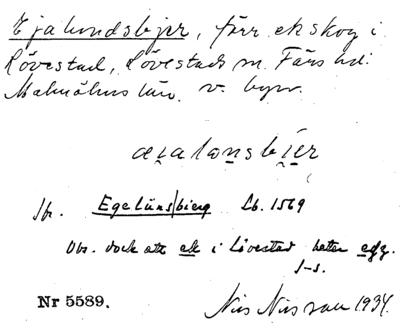 Ejalundsbjer, förr ekskog i
Lövestad, Lövestads sn. Färs hd.
Malmöhus län. v. byn.
Jbr. Egelünsbierg Lb. 1569
Obs. dock att ek i Lövestad heter
Nr 5589. Nils Nilsson 1934.